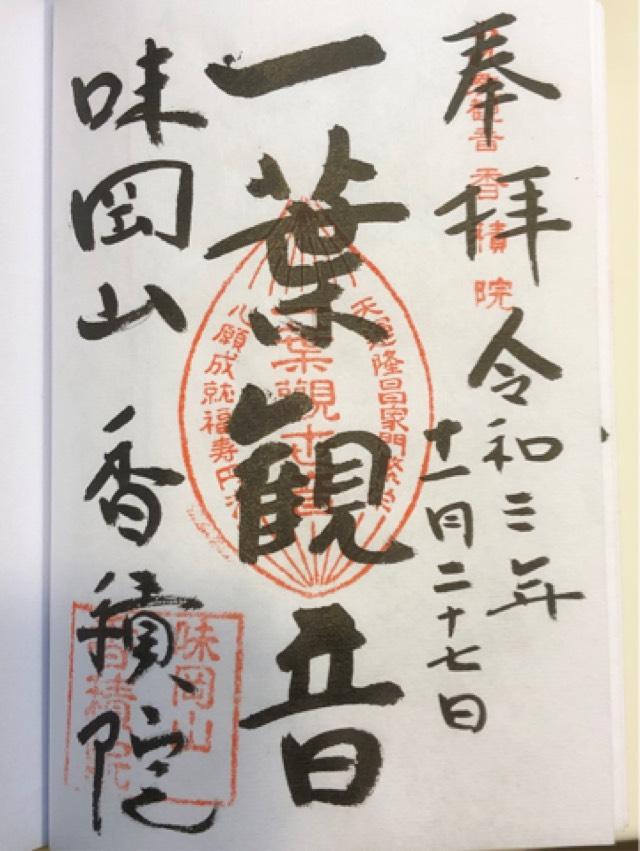 奉拝
令和三年
十一月二十七日
一葉観音
味岡山 香積院
観音 香積院
隆昌家門
一葉観世音
心願成就福寿円満
味岡山
香積院